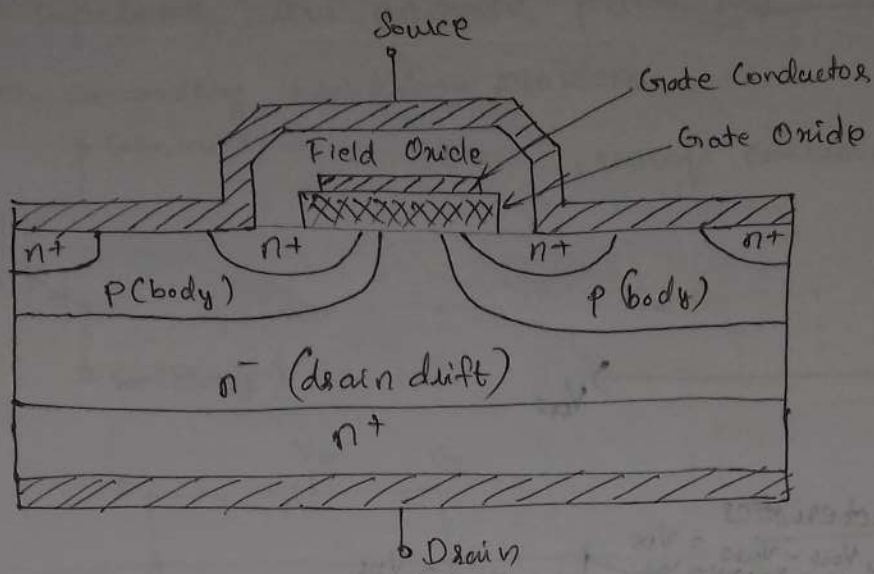 Source
Gate Conductor
Gate Oxide
Field Oxide
n+ n+ n+ n+
p(body) p(body)
n- (drain drift)
n+
Drain